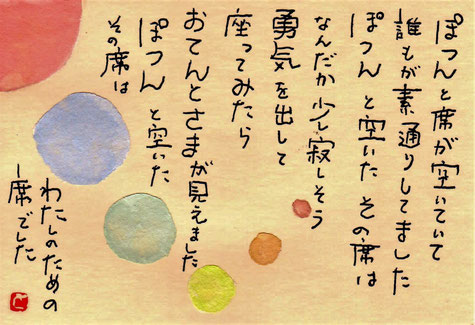 ぽつんと席が空いていて
誰もが素通りしてました
ぽつんと空いたその席は
なんだか少し寂しそう
勇気を出して
座ってみたら
おてんとさまが見えました
ぽつんと空いた
その席は
わたしのための
一席でした